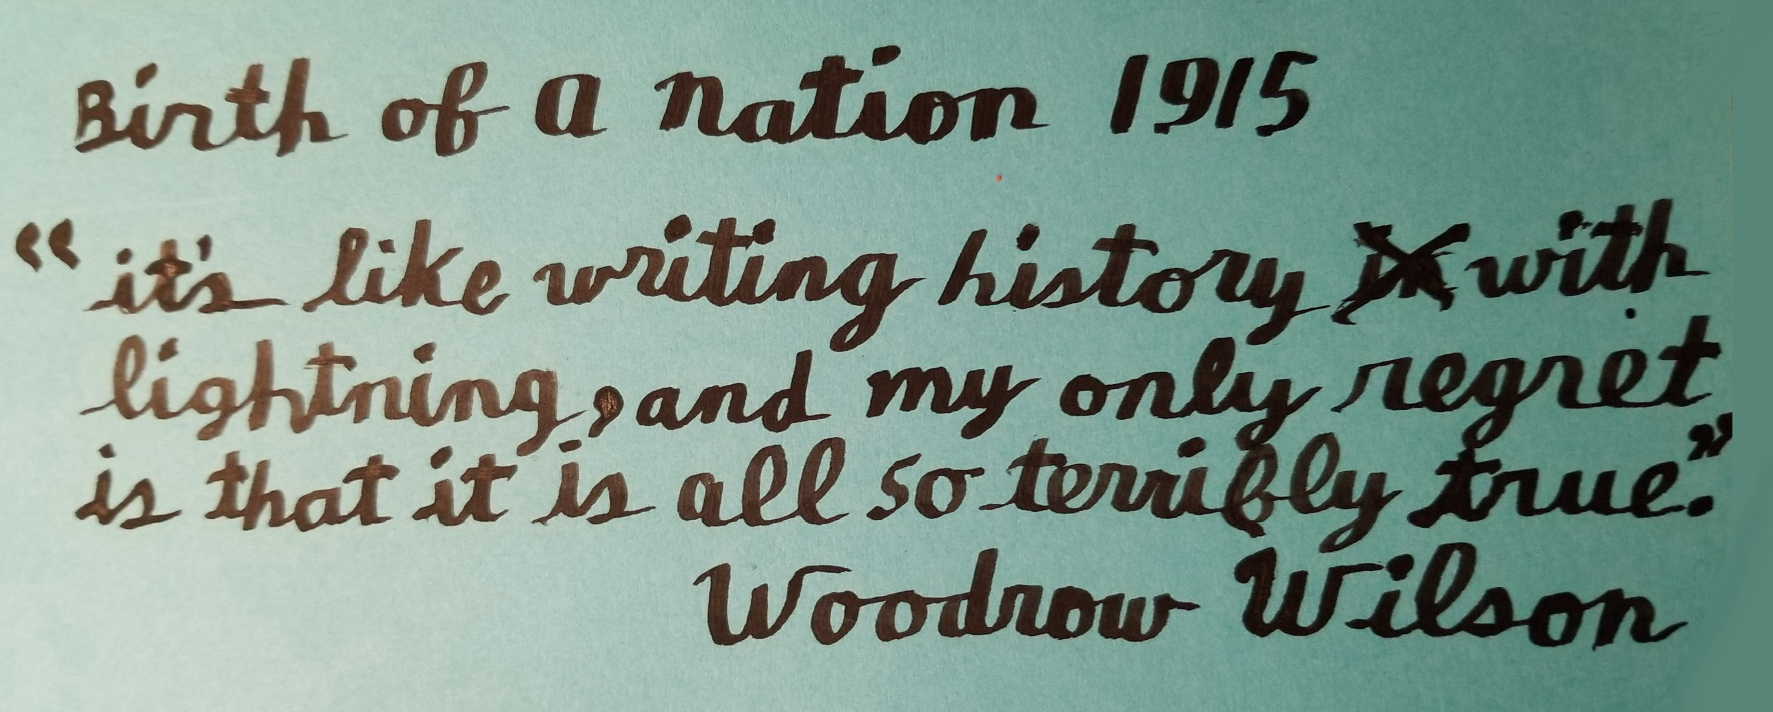 Birth of a nation 1915
“it's like writing history in with
lightning, and my only regret
is that it is all so terribly true.”
Woodrow Wilson